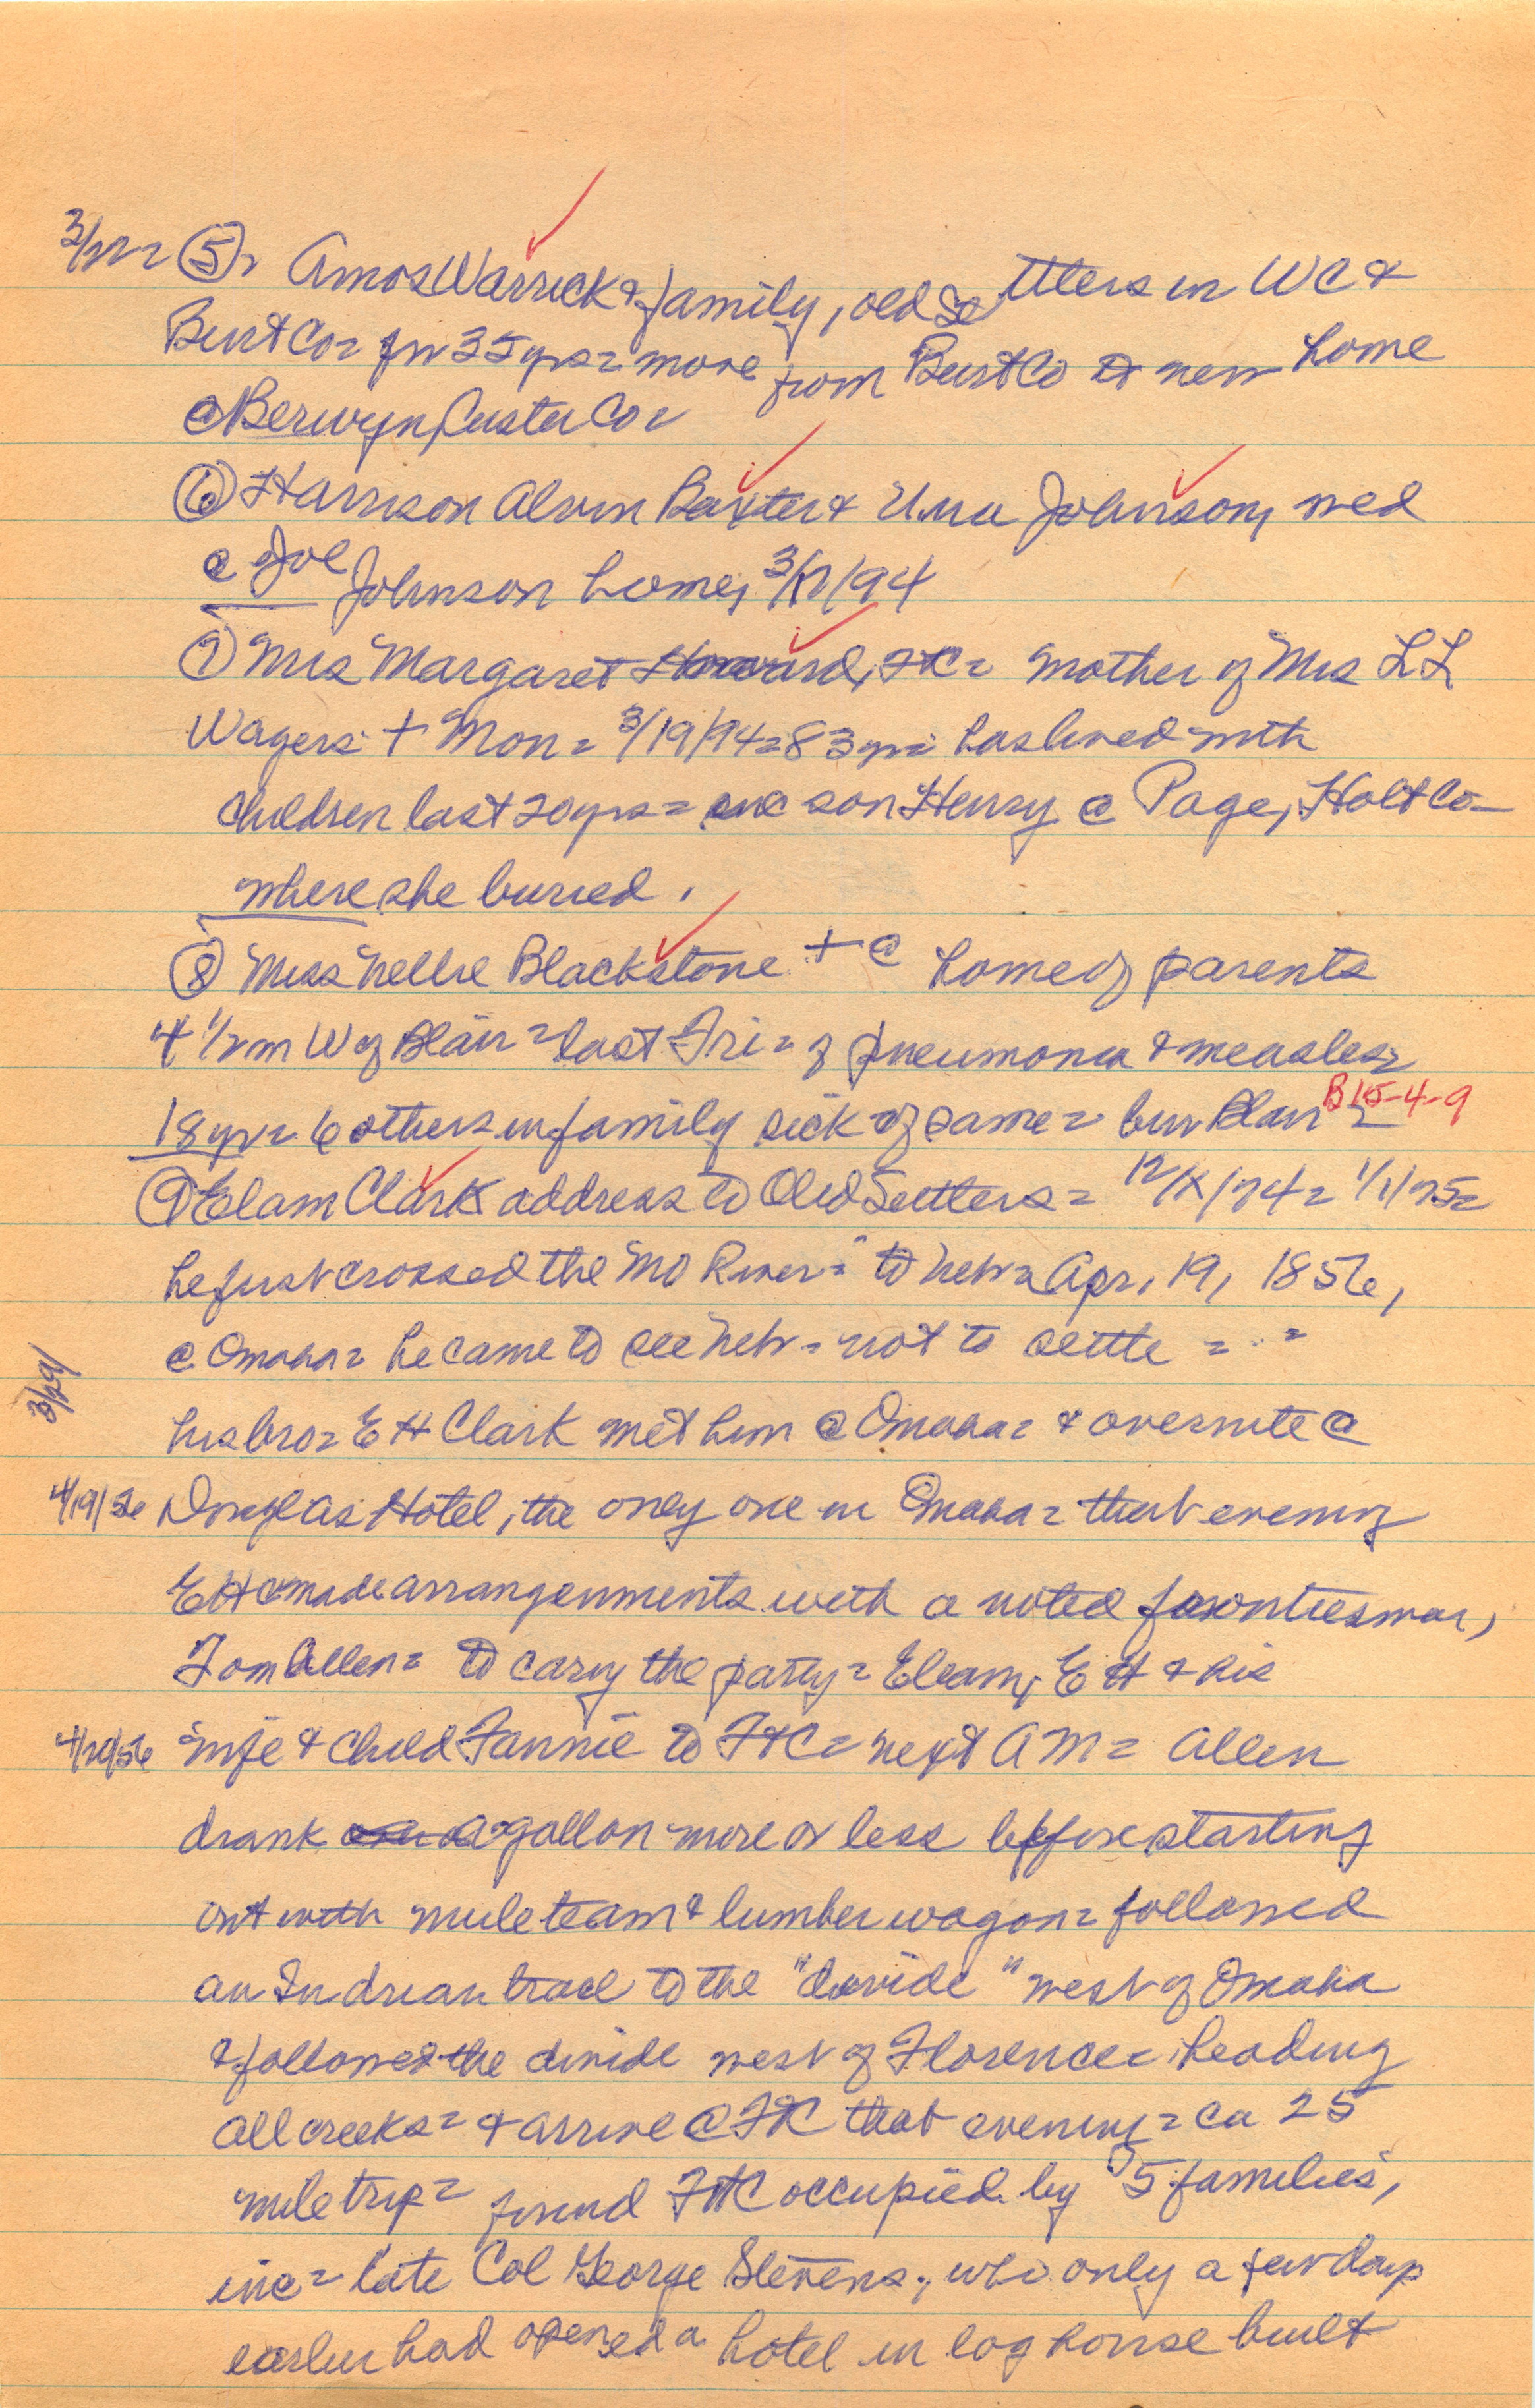 3/22 = ⑤ = Amos Warrick & family, old settlers in WC &
Burt Co = for 35 yrs = move from Burt Co to new home
@ Berwyn, Custer Co =
⑥ Harrison Alvin Baxter & Johnson, wed
@ Joe Johnson home, 3/ /94
⑦ Mrs Margaret FtC = mother of Mrs LL
Wagers + Mon = 3/19/94 = 83 yr = has lived with
children last 20 yrs = one son Henry @ Page, Holt Co -
where she buried.
⑧ Miss Nellie Blackstone + @ home of parents
4 1/2 m W of Blair = last Fri = of pneumonia & measles =
18 yr = 6 others in family sick of same = bur Blair = B 15-4-9
⑨ Elam Clark address to Old Settlers = 12/X/94 = 1/1/95 =
he first crossed the MO River = to Neb = Apr, 19, 1856,
@ Omaha = he came to see Neb = not to settle = =
3/29/
his bro = EH Clark met him @ Omaha = & overnite @
4/19/56 Douglas Hotel, the only one in Omaha = that evening
EHC made arrangenments with a noted frontiesman,
Tom Allen = to carry the party = Elam, EH & his
4/20/56 wife & child Fannie to FtC = next AM = Allen
drank a gallon more or less before starting
out with mule team & lumber wagon = followed
an Indian trail to the "divide" west of Omaha
& followed the divide west of Florence = heading
all creeks = & arrive @ FtC that evening = ca 25
mile trip = found FtC occupied by 5 families,
inc = late Col George Stevens, who only a few days
earlier had opened a hotel in log house built